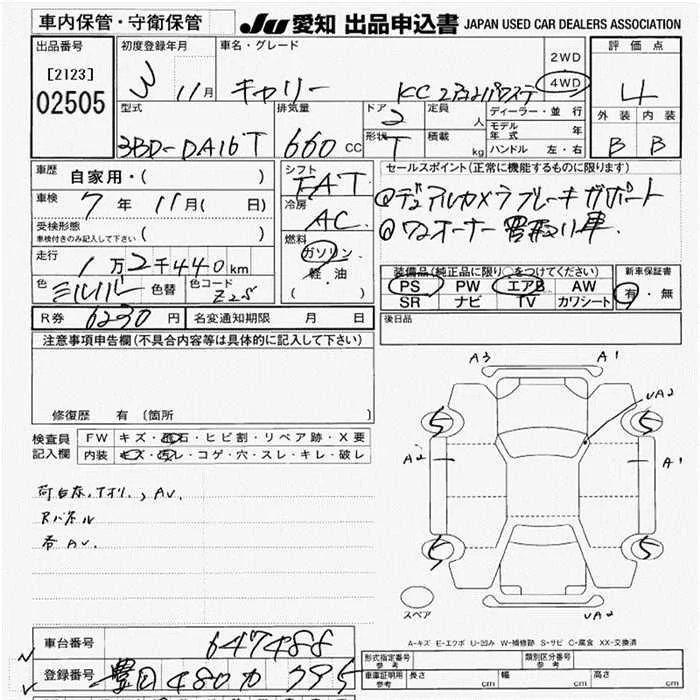 車内保管・守衛保管 JU 愛知 出品申込書 JAPAN USED CAR DEALERS ASSOCIATION
出品番号 初度登録年月 車名・グレード 2WD 評価点
[2123] 11月 キャリー KC 4WD 4
02505
型式 排気量 ドア 2 定員 人 ディーラー・並行 外装 内装
3BD-DA16T 660 CC 形状 T 積載 kg モデル年式 年 B B
ハンドル 左・右
車歴 自家用・( ) シフト FAT セールスポイント(正常に機能するものに限ります)
車検 7年 11月( 日) 冷房 AC デュアルカメラブレーキサポート
受検形態 車検付きのみ記入して下さい ( ) 燃料 ガソリン ワンオーナー 車
走行 1万2千440km 軽油 ( )
色 シルバー 色替 色コード Z2S
装備品(純正品に限り○をつけてください) 新車保証書
PS PW エアB AW 有・無
SR ナビ TV カワシート
R券 6230円 名変通知期限 月 日 後日品
注意事項申告欄(不具合内容等は具体的に記入して下さい)
修復歴 有 (箇所 )
検査員記入欄 FW キズ・飛石・ヒビ割・リペア跡・X要
内装 キズ・汚レ・コゲ・穴・スレ・キレ・破レ
Rパネル
A3 A1
UA2
S S
A2 A1
S S
スペア UA2
A-キズ E-エクボ U-凹み W-補修跡 S-サビ C-腐食 XX-交換済
車台番号 647488
登録番号 豊田 480 カ 795
形式指定番号 参考 類別区分番号 参考
車庫証明用 参考 長さ cm 幅 cm 高さ cm